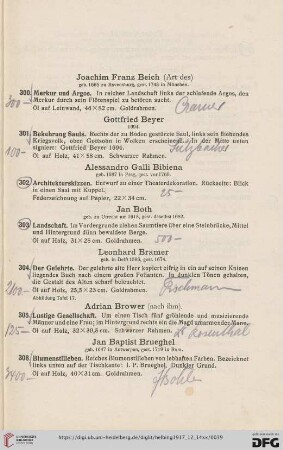 Joachim Franz Beich (Art des)
geb. 1665 zu Ravensburg, gest. 1748 in München.
300 Merkur und Argos. In reicher Landschaft links der schlafende Argos, den
Merkur durch sein Flötenspiel zu betören sucht.
Öl auf Leinwand, 46×52 cm. Goldrahmen.
300 -
Cramer
Gottfried Beyer
1694.
301 Bekehrung Sauls. Rechts der zu Boden gestürzte Saul, links sein fliehendes
Kriegsvolk, über Golmoin in Wolken erscheinend. In der Mitte unten
signiert: Gottfried Beyer 1694.
Öl auf Holz, 41×58 cm. Schwarzer Rahmen.
100 -
Sulzbacher
Alessandro Galli Bibiena
geb. 1687 in Parma, gest. vor 1769.
302 Architekturskizzen. Entwurf zu einer Theaterdekoration. Rückseite: Blick
in einen Saal mit Kuppel.
Federzeichnung auf Papier, 22×34 cm.
25 -
Jan Both
geb. zu Utrecht um 1618, gest. daselbst 1652.
303 Landschaft. Im Vordergrunde ziehen Saumtiere über eine Steinbrücke, Mittel
und Hintergrund füllen bewaldete Berge.
Öl auf Holz, 31×25 cm. Goldrahmen.
500 -
Leonhard Bramer
geb. in Delft 1595, gest. 1674.
304 Der Gelehrte. Der gelehrte alte Herr kopiert eifrig in ein auf seinen Knieen
liegendes Buch nach einem großen Folianten. In dunklen Tönen gehalten,
die Gestalt des Alten scharf beleuchtet.
Öl auf Holz, 28,5×23 cm. Goldrahmen.
Abbildung Tafel 17.
Adrian Brower (nach ihm)
305 Lustige Gesellschaft. Um einen Tisch fünf gröhlende und musizierende
Männer und eine Frau; im Hintergrund rechts ein die Magd umarmender Mann.
Öl auf Holz, 32×39,8 cm. Schwarzer Rahmen.
125 -
Rosenthal
Jan Baptist Brueghel
geb. 1647 in Antwerpen, gest. 1719 in Rom.
306 Blumenstilleben. Reiches Blumenstilleben von lebhaften Farben. Bezeichnet
links unten auf der Tischkante: I. P. Brueghel. Dunkler Grund.
Öl auf Holz, 40×31 cm. Goldrahmen.
http://digi.ub.uni-heidelberg.de/diglit/helbing1917_12_14xx/0019
© Universitätsbibliothek Heidelberg
gefördert durch die
DFG